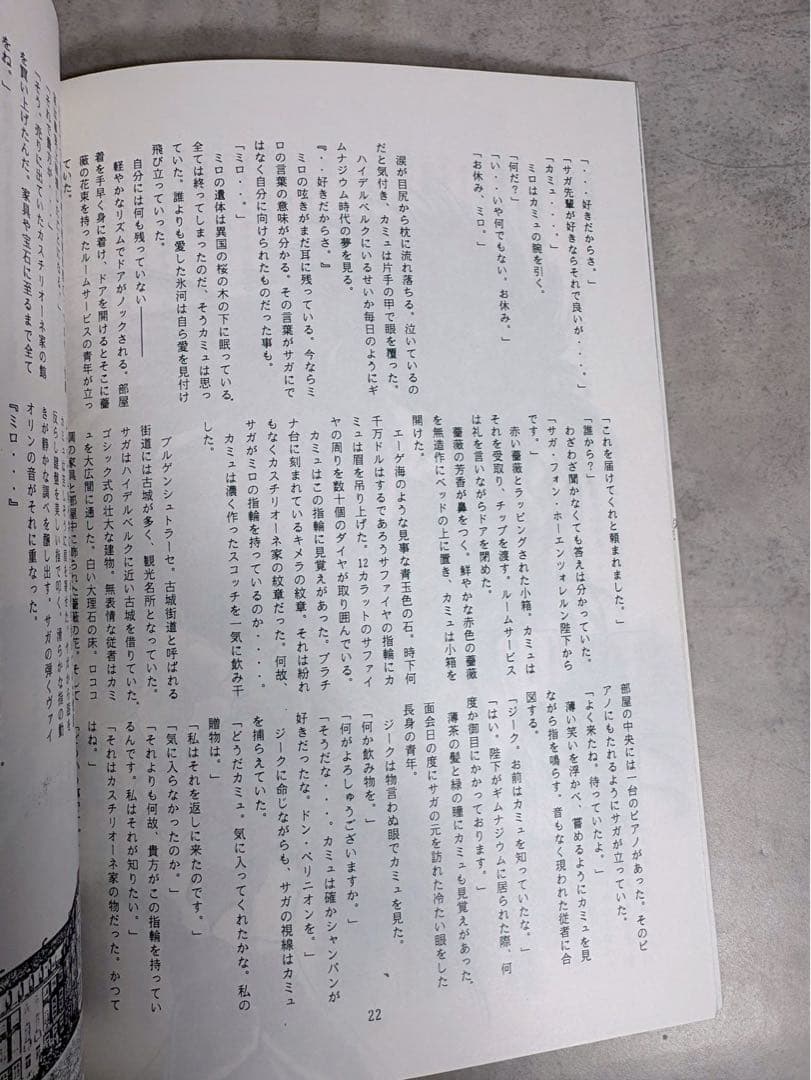 「・・・好きだからさ。」
「サガ先輩が好きならそれで良いが・・・。」
「カミュ・・・。」
ミロはカミュの腕を引く。
「何だ?」
「い・・・いや何でもない。お休み。」
「お休み、ミロ。」
涙が目尻から枕に流れ落ちる。泣いているの
だと気付き、カミュは片手の甲で眼を覆った。
ハイデルベルクにいるせいか毎日のようにギ
ムナジウム時代の夢を見る。
『・・好きだからさ。』
ミロの呟きがまだ耳に残っている。今ならミ
ロの言葉の意味が分かる。その言葉がサガにで
はなく自分に向けられたものだった事も。
「ミロ・・。」
ミロの遺体は異国の桜の木の下に眠っている。
全ては終ってしまったのだ、そうカミュは思っ
ていた。誰よりも愛した氷河は自ら愛を見付け
飛び立っていった。
自分には何も残っていない――
軽やかなリズムでドアがノックされる。部屋
着を手早く身に着け、ドアを開けるとそこに薔
薇の花束を持ったルームサービスの青年が立っ
ていた。
「これを届けてくれと頼まれました。」
「誰から?」
わざわざ聞かなくても答えは分かっていた。
「サガ・フォン・ホーエンツォレルン陛下から
です。」
赤い薔薇とラッピングされた小箱。カミュは
それを受取り、チップを渡す。ルームサービス
は礼を言いながらドアを閉めた。
薔薇の芳香が鼻をつく。鮮やかな赤色の薔薇
を無造作にベッドの上に置き、カミュは小箱を
開けた。
エーゲ海のような見事な青玉色の石。時下何
千万ドルはするであろうサファイヤの指輪にカ
ミュは眉を吊り上げた。12カラットのサファイ
ヤの周りを数十個のダイヤが取り囲んでいる。
カミュはこの指輪に見覚えがあった。プラチ
ナ台に刻まれているキメラの紋章。それは紛れ
もなくカスチリオーネ家の紋章だった。何故、
サガがミロの指輪を持っているのか・・・・。
カミュは濃く作ったスコッチを一気に飲み干
した。
ブルゲンシュトラーセ。古城街道と呼ばれる
街道には古城が多く、観光名所となっていた。
サガはハイデルベルクに近い古城を借りていた。
ゴシック式の壮大な建物。無表情な従者はカミ
ュを大広間に通した。白い大理石の床。ロココ
調の家具と部屋中に飾られた薔薇の花。そして
部屋の中央には一台のピアノがあった。そのピ
アノにもたれるようにサガが立っていた。
「よく来たね。待っていたよ。」
薄い笑いを浮かべ、嘗めるようにカミュを見
ながら指を鳴らす。音もなく現われた従者に合
図する。
「ジーク。お前はカミュを知っていたな。」
「はい。陛下がギムナジウムに居られた際、何
度か御目にかかっております。」
薄茶の髪と緑の瞳にカミュも見覚えがあった。
面会日の度にサガの元を訪れた冷たい眼をした
長身の青年。
ジークは物言わぬ眼でカミュを見た。
「何か飲み物を。」
「何がよろしゅうございますか。」
「そうだな・・・。カミュは確かシャンパンが
好きだったな。ドン・ペリニオンを。」
ジークに命じながらも、サガの視線はカミュ
を捕らえていた。
「どうだカミュ。気に入ってくれたかな。私の
贈物は。」
「私はそれを返しに来たのです。」
「気に入らなかったのか。」
「それよりも何故、貴方がこの指輪を持ってい
るんです。私はそれが知りたい。」
「それはカスチリオーネ家の物だった。かつて
はね。」
22
「それで貴方が・・・」
「そう、売りに出ていたカスチリオーネ家の館
を買い上げたんだ、家具や宝石に至るまで全て
をね。」
きが静かな調べを醸し出す。サガの弾くヴァイ
オリンの音がそれに重なった。
『ミロ・・・』